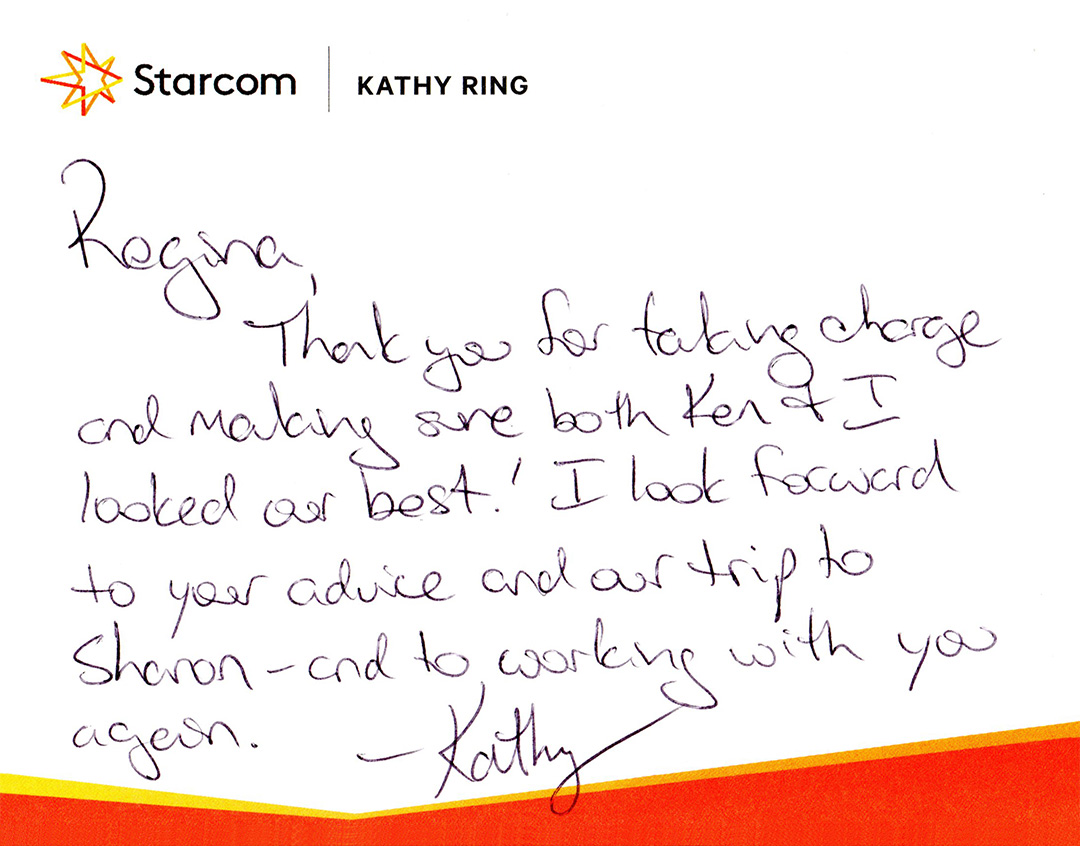 Starcom | KATHY RING
Regina,
Thank you for taking charge
and making sure both Ken & I
looked our best! I look forward
to your advice and our trip to
Sharon - and to working with you
again.
- Kathy